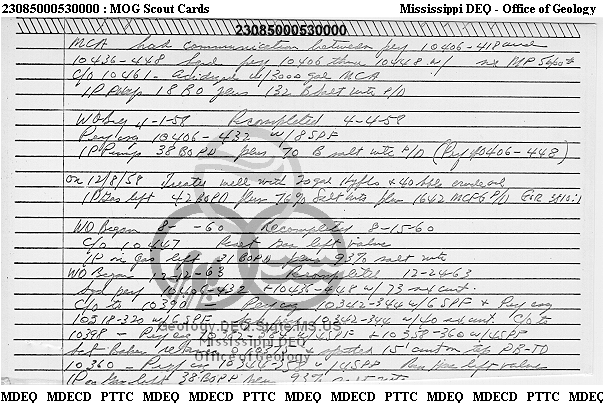 23085000530000 : MOG Scout Cards Mississippi DEQ - Office of Geology
23085000530000
MCA had communication between perf 10406-418 and
10436-448 Sqd perf 10406 thru 10448 w/
C/O 10461 - Acidized w/3000 gal MCA
IP Pump 18 BO plus 132 B salt wtr P/D
WO Beg 4-1-59 Recompleted 4-4-59
Perf csg 10406-432 w/85PF
IP Pump 38 BOPD plus 70 B salt wtr P/D (Perf 10406-448)
On 12/8/59 Treated well with 20 gal Hyflo & 40 bbls crude oil
IP Gas lift 42 BOPD plus 76% Salt wtr plus 1642 MCFG P/D GOR
WO Began 8- -60 Recompleted 8-15-60
C/O 10447 Reset gas lift valve
IP on gas lift 31 BOPD plus 93% salt wtr
WO Began 12-12-63 Recompleted 12-24-63
Sqd perf 10406-432 & 10436-448 w/73 sx cmt.
C/O to 1039 - Perf csg 10342-344 w/6SPF & Perf csg
10318-320 w/6SPF - Sqd perf 10342-344 w/40 sx cmt C/O to
10398 - Perf csg w/4SPF & 10358-360 w/4SPF
Set Baker & spotted 15' cmt on top PB-TD
10360 - Perf csg 10344-358 w/4SPF Ran gas lift valves
IP on Gas lift 38 BOPD plus 93% salt wtr
Geology.DEQ.State.MS.US
Mississippi DEQ
Office of Geology
MDEQ MDECD PTTC MDEQ MDECD PTTC MDEQ MDECD PTTC MDEQ MDECD PTTC MDEQ